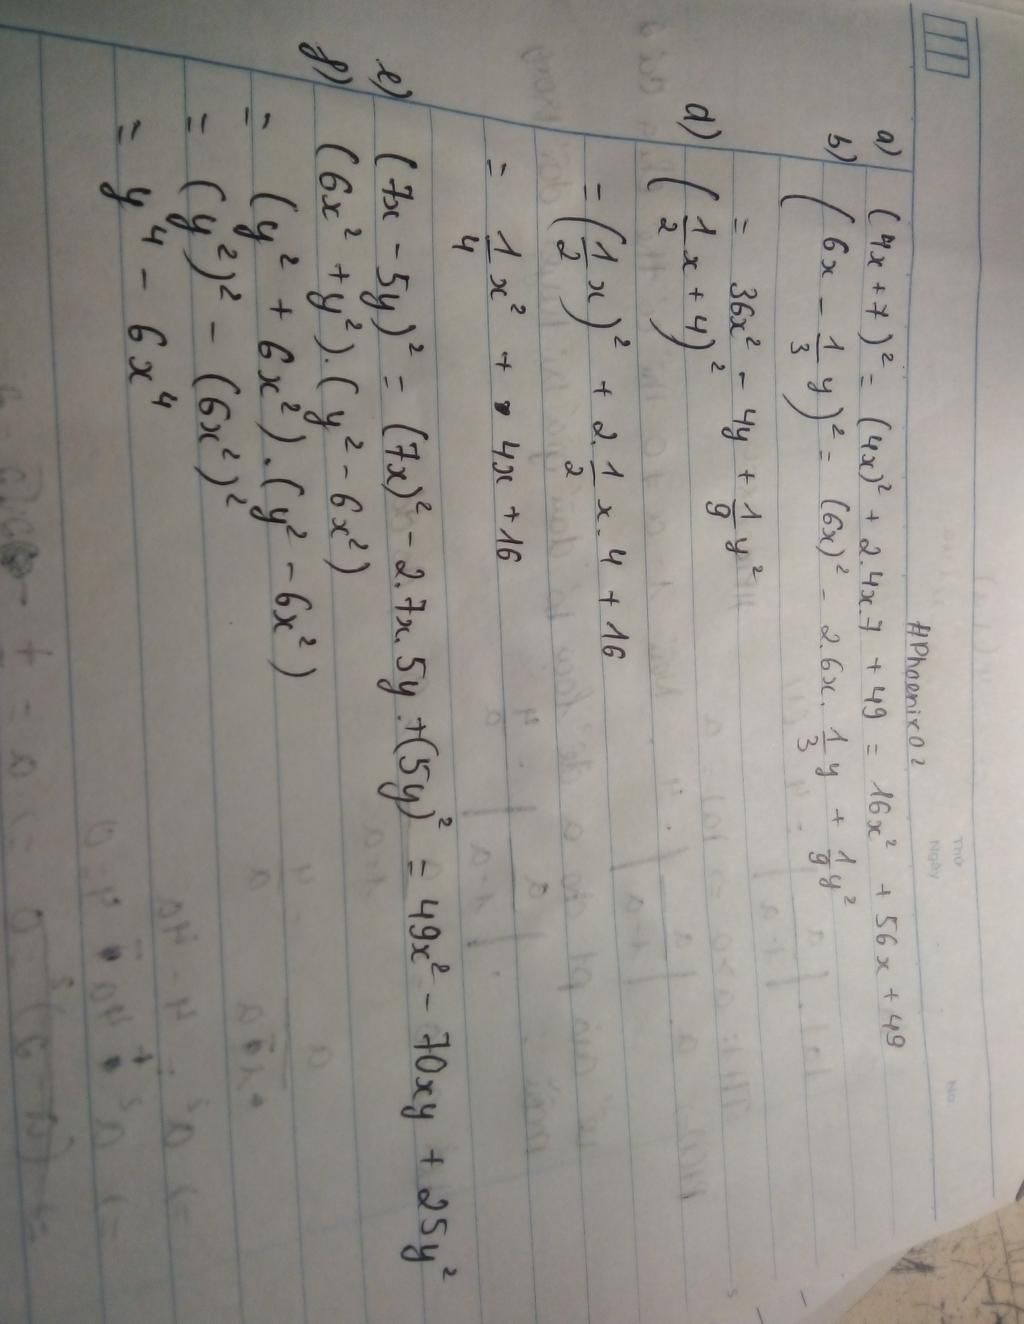 Thứ
Ngày
No.
#Phoenix02
a) (4x+7)² = (4x)² + 2.4x.7 + 49 = 16x² + 56x + 49
b) (6x - 1/3 y)² = (6x)² - 2.6x. 1/3 y + 1/9 y²
= 36x² - 4y + 1/9 y²
d) (1/2 x + 4)²
= (1/2 x)² + 2. 1/2 x. 4 + 16
= 1/4 x² + 4x + 16
e) (7x - 5y)² = (7x)² - 2.7x.5y + (5y)² = 49x² - 70xy + 25y²
f) (6x² + y²).(y² - 6x²)
= (y² + 6x²).(y² - 6x²)
= (y²)² - (6x²)²
= y⁴ - 6x⁴